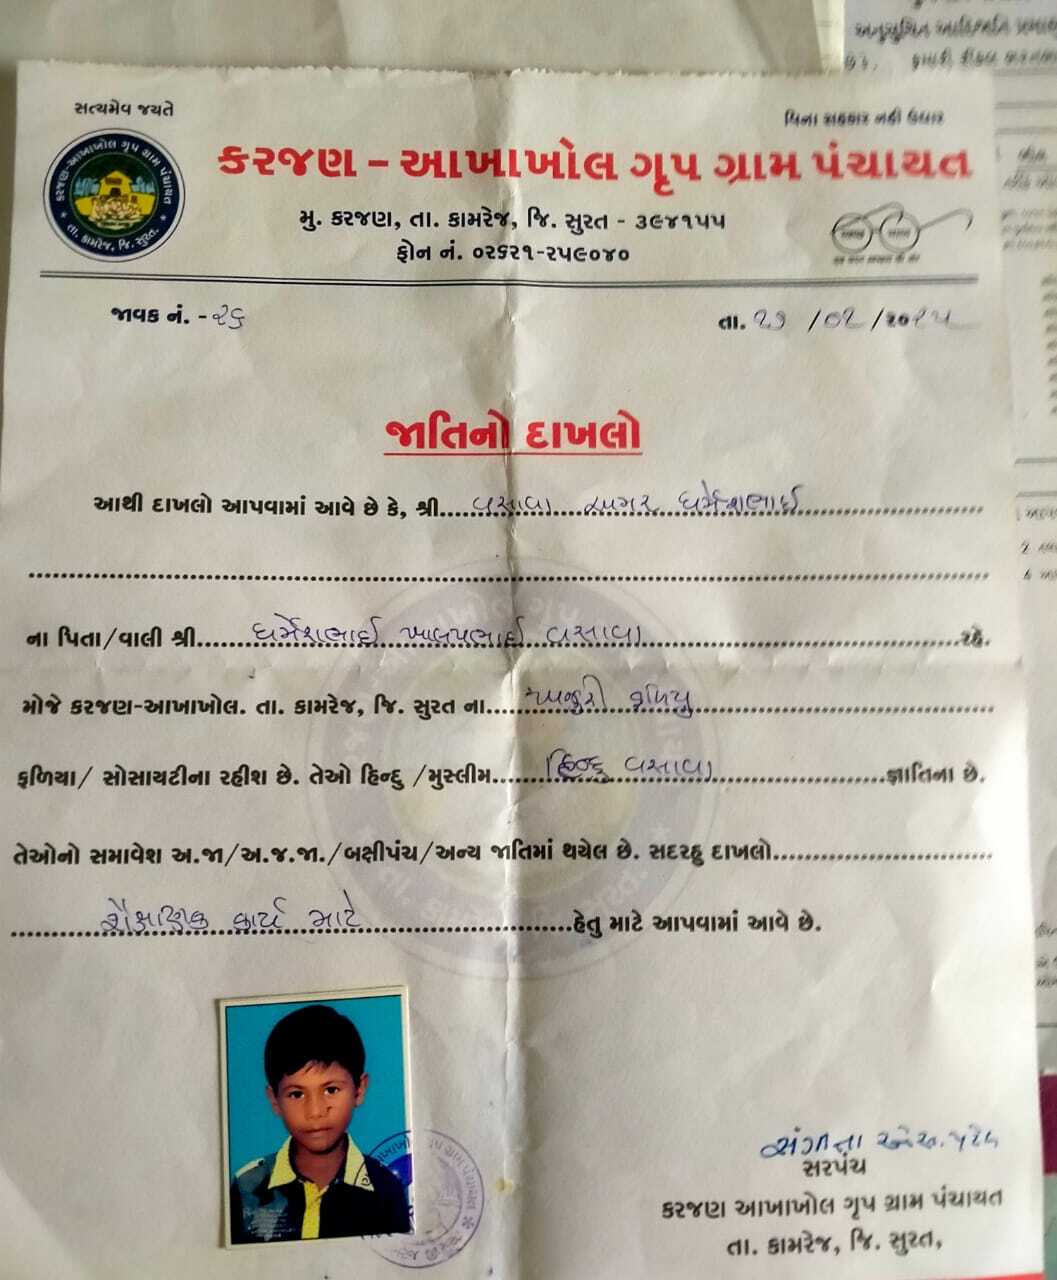 સત્યમેવ જયતે
વિના સહકાર નહી ઉધ્ધાર
કરજણ – આખાખોલ ગૃપ ગ્રામ પંચાયત
મુ. કરજણ, તા. કામરેજ, જિ. સુરત - ૩૯૪૧૫૫
ફોન નં. ૦૨૬૨૧-૨૫૯૦૪૦
જાવક નં. - ૨૬
તા. ૨૭ /૦૨ /૨૦૨૫
જાતિનો દાખલો
આથી દાખલો આપવામાં આવે છે કે, શ્રી.....વસાવા સાગર ધર્મેશભાઈ
ના પિતા/વાલી શ્રી.......ધર્મેશભાઈ વસાવા.......રહે.
મોજે કરજણ-આખાખોલ. તા. કામરેજ, જિ. સુરત ના.......ફળિયુ.......
ફળિયા/ સોસાયટીના રહીશ છે. તેઓ હિન્દુ /મુસ્લીમ.......હિન્દુ વસાવા.......જ્ઞાતિના છે.
તેઓનો સમાવેશ અ.જા/અ.જ.જા./બક્ષીપંચ/અન્ય જાતિમાં થયેલ છે. સદરહુ દાખલો.......
શૈક્ષણિક કાર્ય માટે.......હેતુ માટે આપવામાં આવે છે.
સરપંચ
કરજણ આખાખોલ ગૃપ ગ્રામ પંચાયત
તા. કામરેજ, જિ. સુરત,